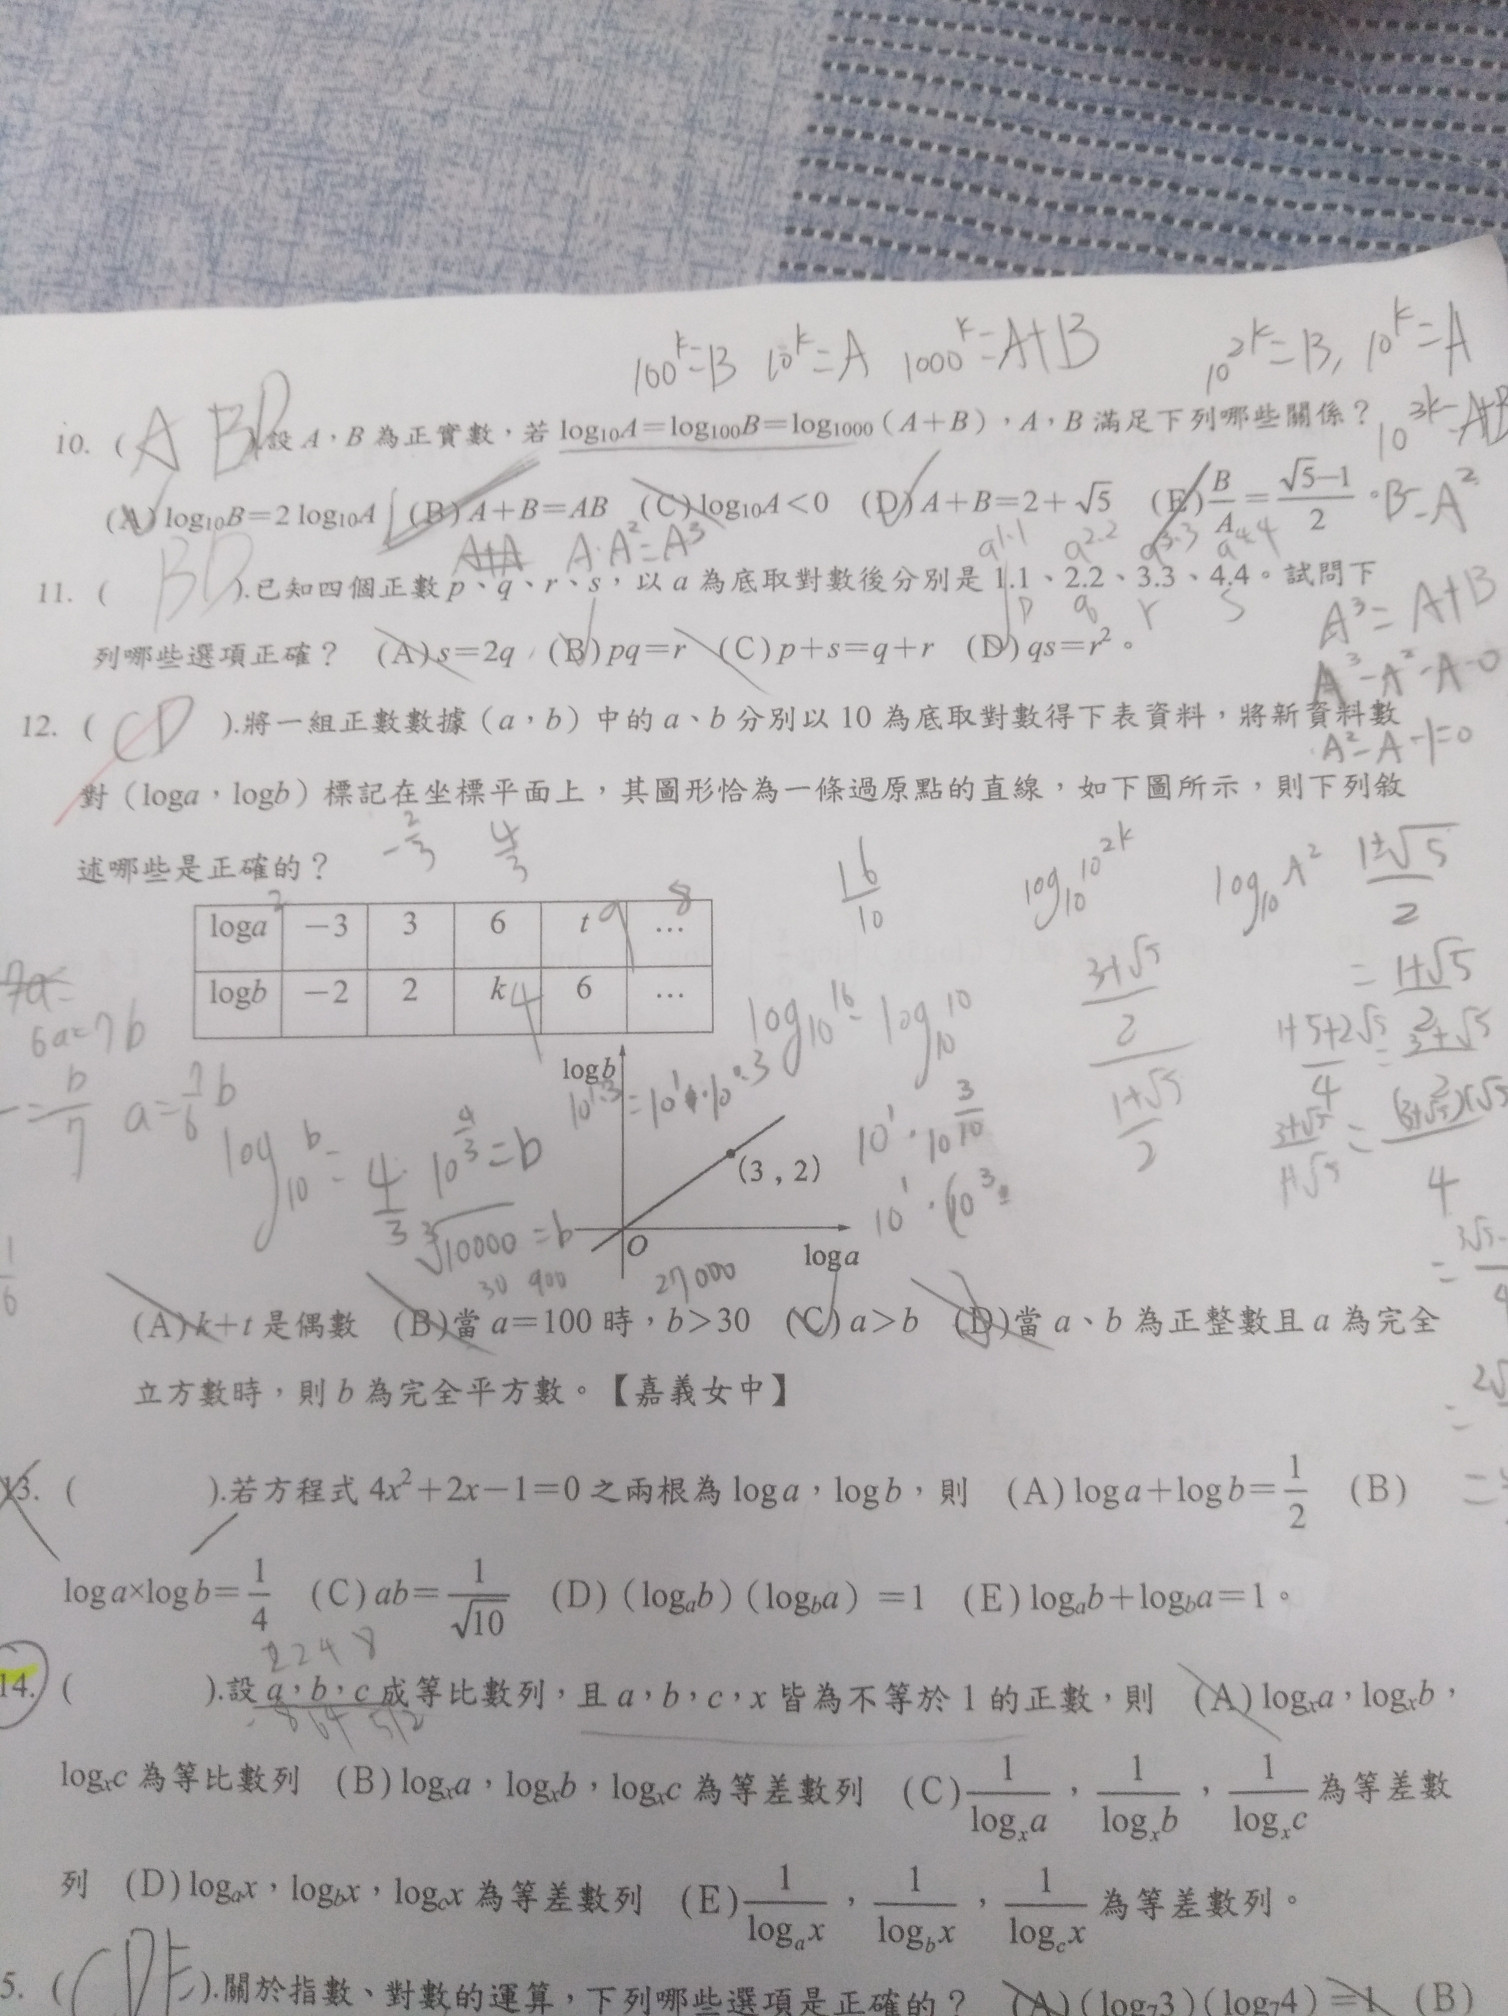 100^k=B 10^k=A 1000^k=A+B 10^2k=B, 10^k=A
10. ( A BD ).設 A，B 為正實數，若 log₁₀A＝log₁₀₀B＝log₁₀₀₀（A＋B），A，B 滿足下列哪些關係？ 10^3k=A+B
(A) log₁₀B＝2 log₁₀A (B) A＋B＝AB (C) log₁₀A＜0 (D) A＋B＝2＋√5 (E) B/A＝(√5−1)/2。 B=A²
A·A²=A³ a^1.1 a^2.2 a^3.3 a^4.4
11. ( BD ).已知四個正數 p、q、r、s，以 a 為底取對數後分別是 1.1、2.2、3.3、4.4。試問下
p q r s A³=A+B
列哪些選項正確？ (A) s＝2q (B) pq＝r (C) p＋s＝q＋r (D) qs＝r²。
A³-A²-A=0
12. ( CD ).將一組正數數據（a，b）中的 a、b 分別以 10 為底取對數得下表資料，將新資料數
A²-A-1=0
對（loga，logb）標記在坐標平面上，其圖形恰為一條過原點的直線，如下圖所示，則下列敘
述哪些是正確的？
-2/3 4/3 16/10 log₁₀10^2k log₁₀A² (1±√5)/2
2 9 8
loga −3 3 6 t …
logb −2 2 k 6 …
4
6a=7b
a=7/6 b
log₁₀b=4/3 10^4/3=b
∛10000=b
30 900 27000
10^1.3=10^1·10^0.3
log₁₀16=log₁₀10
10^1·10^3/10
logb
(3，2)
O
loga
(A) k＋t 是偶數 (B)當 a＝100 時，b＞30 (C) a＞b (D)當 a、b 為正整數且 a 為完全
立方數時，則 b 為完全平方數。【嘉義女中】
13. ( ).若方程式 4x²＋2x−1＝0 之兩根為 log a，log b，則 (A) log a＋log b＝1/2 (B)
log a×log b＝1/4 (C) ab＝1/√10 (D)（logₐb）（log_b a）＝1 (E) logₐb＋log_b a＝1。
2 2 4 8
14. ( ).設 a，b，c 成等比數列，且 a，b，c，x 皆為不等於 1 的正數，則 (A) logₓa，logₓb，
8 64 512
logₓc 為等比數列 (B) logₓa，logₓb，logₓc 為等差數列 (C) 1/logₓa，1/logₓb，1/logₓc 為等差數
列 (D) logₐx，log_b x，log_c x 為等差數列 (E) 1/logₐx，1/log_b x，1/log_c x 為等差數列。
5. ( CDE ).關於指數、對數的運算，下列哪些選項是正確的？ (A)（log₇3）（log₇4）＝1 (B)